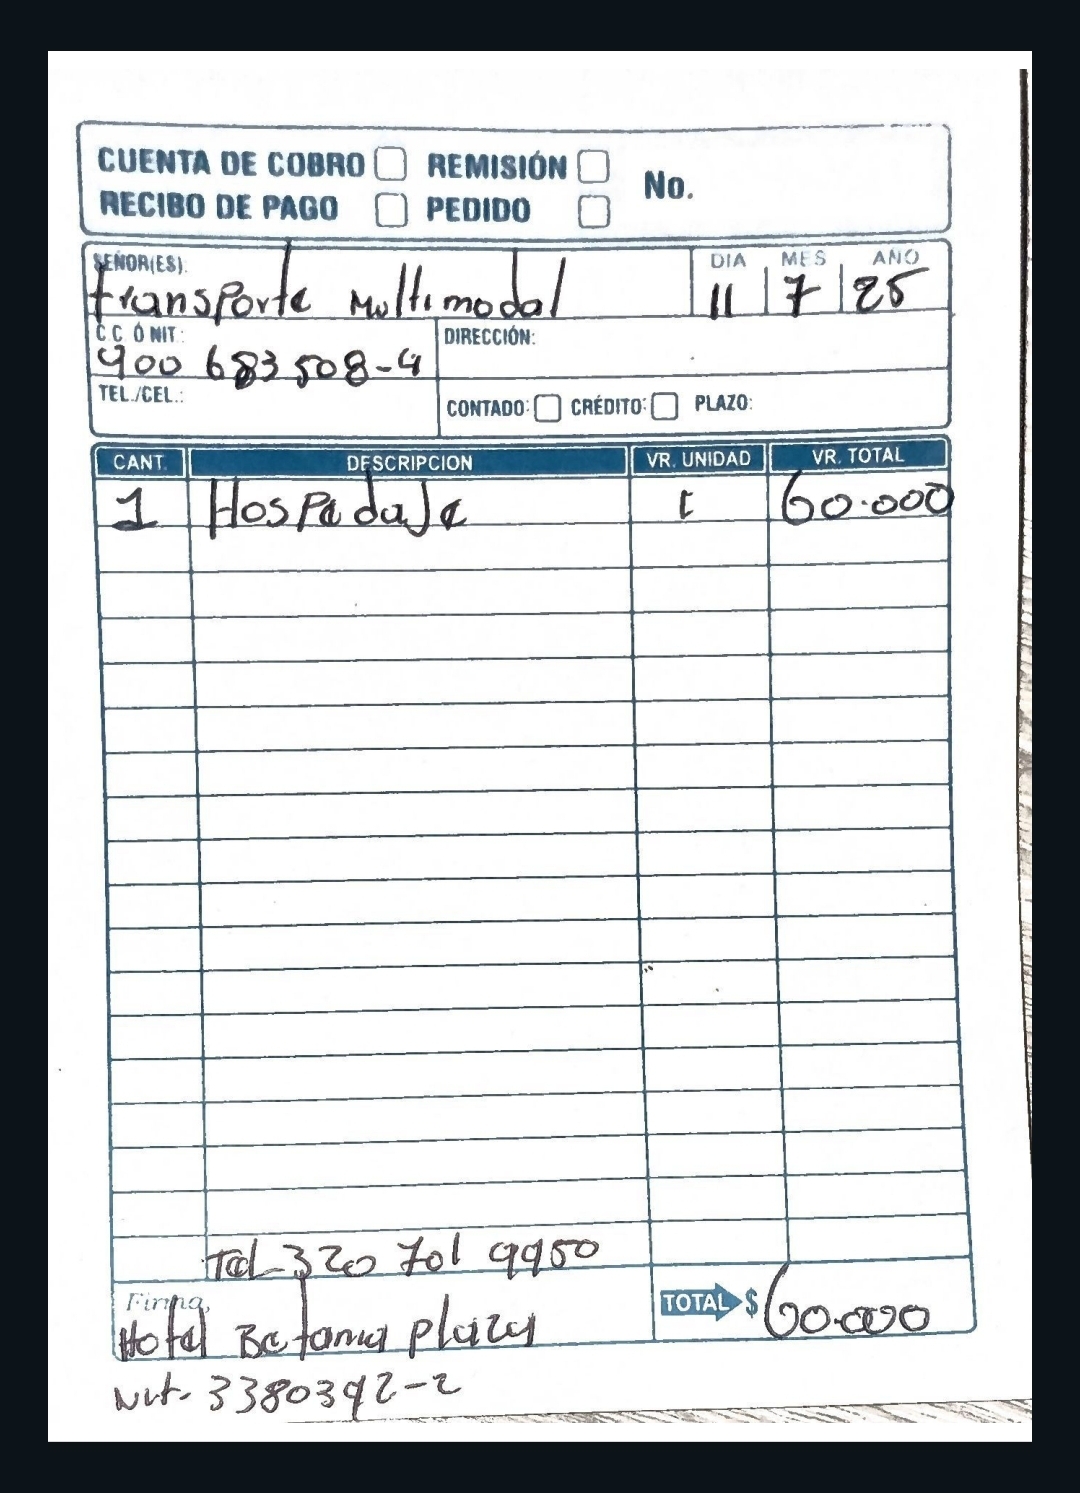 CUENTA DE COBRO REMISIÓN No.
RECIBO DE PAGO PEDIDO
SEÑOR(ES): DIA MES AÑO
transporte Multimodal 11 7 25
C.C Ó NIT.: DIRECCIÓN:
900 683508-4
TEL./CEL.: CONTADO: CRÉDITO: PLAZO:
CANT. DESCRIPCION VR. UNIDAD VR. TOTAL
1 Hospedaje 60.000
Tel 320 701 9950
Firma, TOTAL $ 60.000
Hotel Betania plaza
Nit. 3380392-2